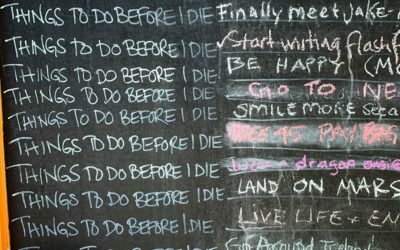 THINGS TO DO BEFORE I DIE Finally meet Jake-
THINGS TO DO BEFORE I DIE ✓ Start writing flash
THINGS TO DO BEFORE I DIE BE HAPPY! (MO
THINGS TO DO BEFORE I DIE GO TO NE
THINGS TO DO BEFORE I DIE SMILE MORE
THINGS TO DO BEFORE I DIE
THINGS TO DO BEFORE I DIE a dragon
THINGS TO DO BEFORE I DIE LAND ON MARS
THINGS TO DO BEFORE I DIE LIVE LIFE + EN
THINGS TO DO BEFORE I DIE Go Around